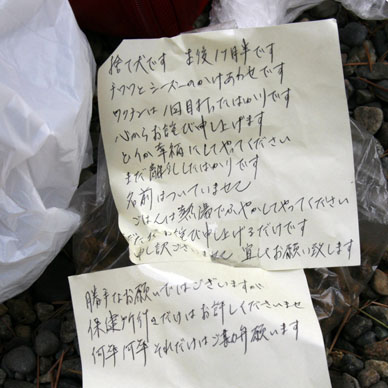 捨て犬です 生後1ヶ月半です
チワワとシーズーのかけあわせです
ワクチンは1回目打ったばかりです
心からお詫び申し上げます
どうか幸福にしてやってください
まだ離乳したばかりです
名前はついていません
ごはんは熱湯でふやかしてやってください
ただただお詫び申し上げるだけです
申し訳ございません 宜しくお願い致します
勝手なお願いではございますが
保健所行きだけはお許しくださいませ
何卒何卒それだけはご勘弁願います